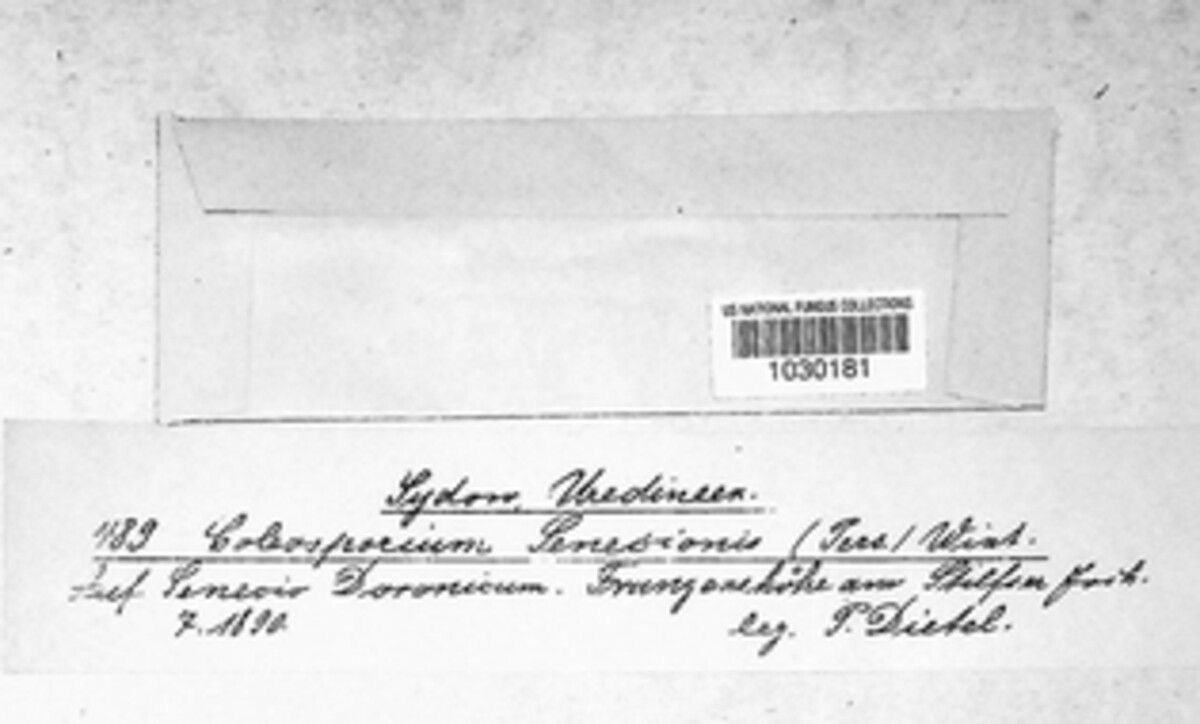 US NATIONAL FUNGUS COLLECTIONS
1030181
Sydow, Uredineen.
489 Coleosporium Senecionis (Pers.) Wint.
Auf Senecio Doronicum. Franzenshöhe am Stilfser Joch.
7. 1890
leg. P. Dietel.